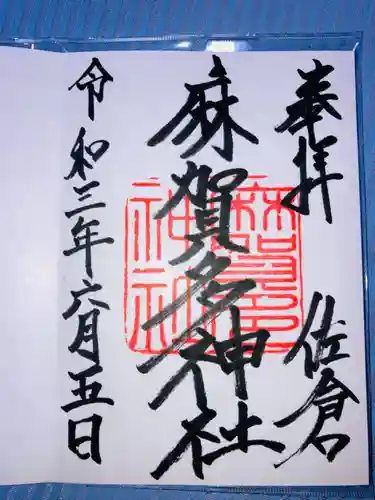 奉拝 佐倉
麻賀多神社
令和三年六月五日
麻賀多
神社